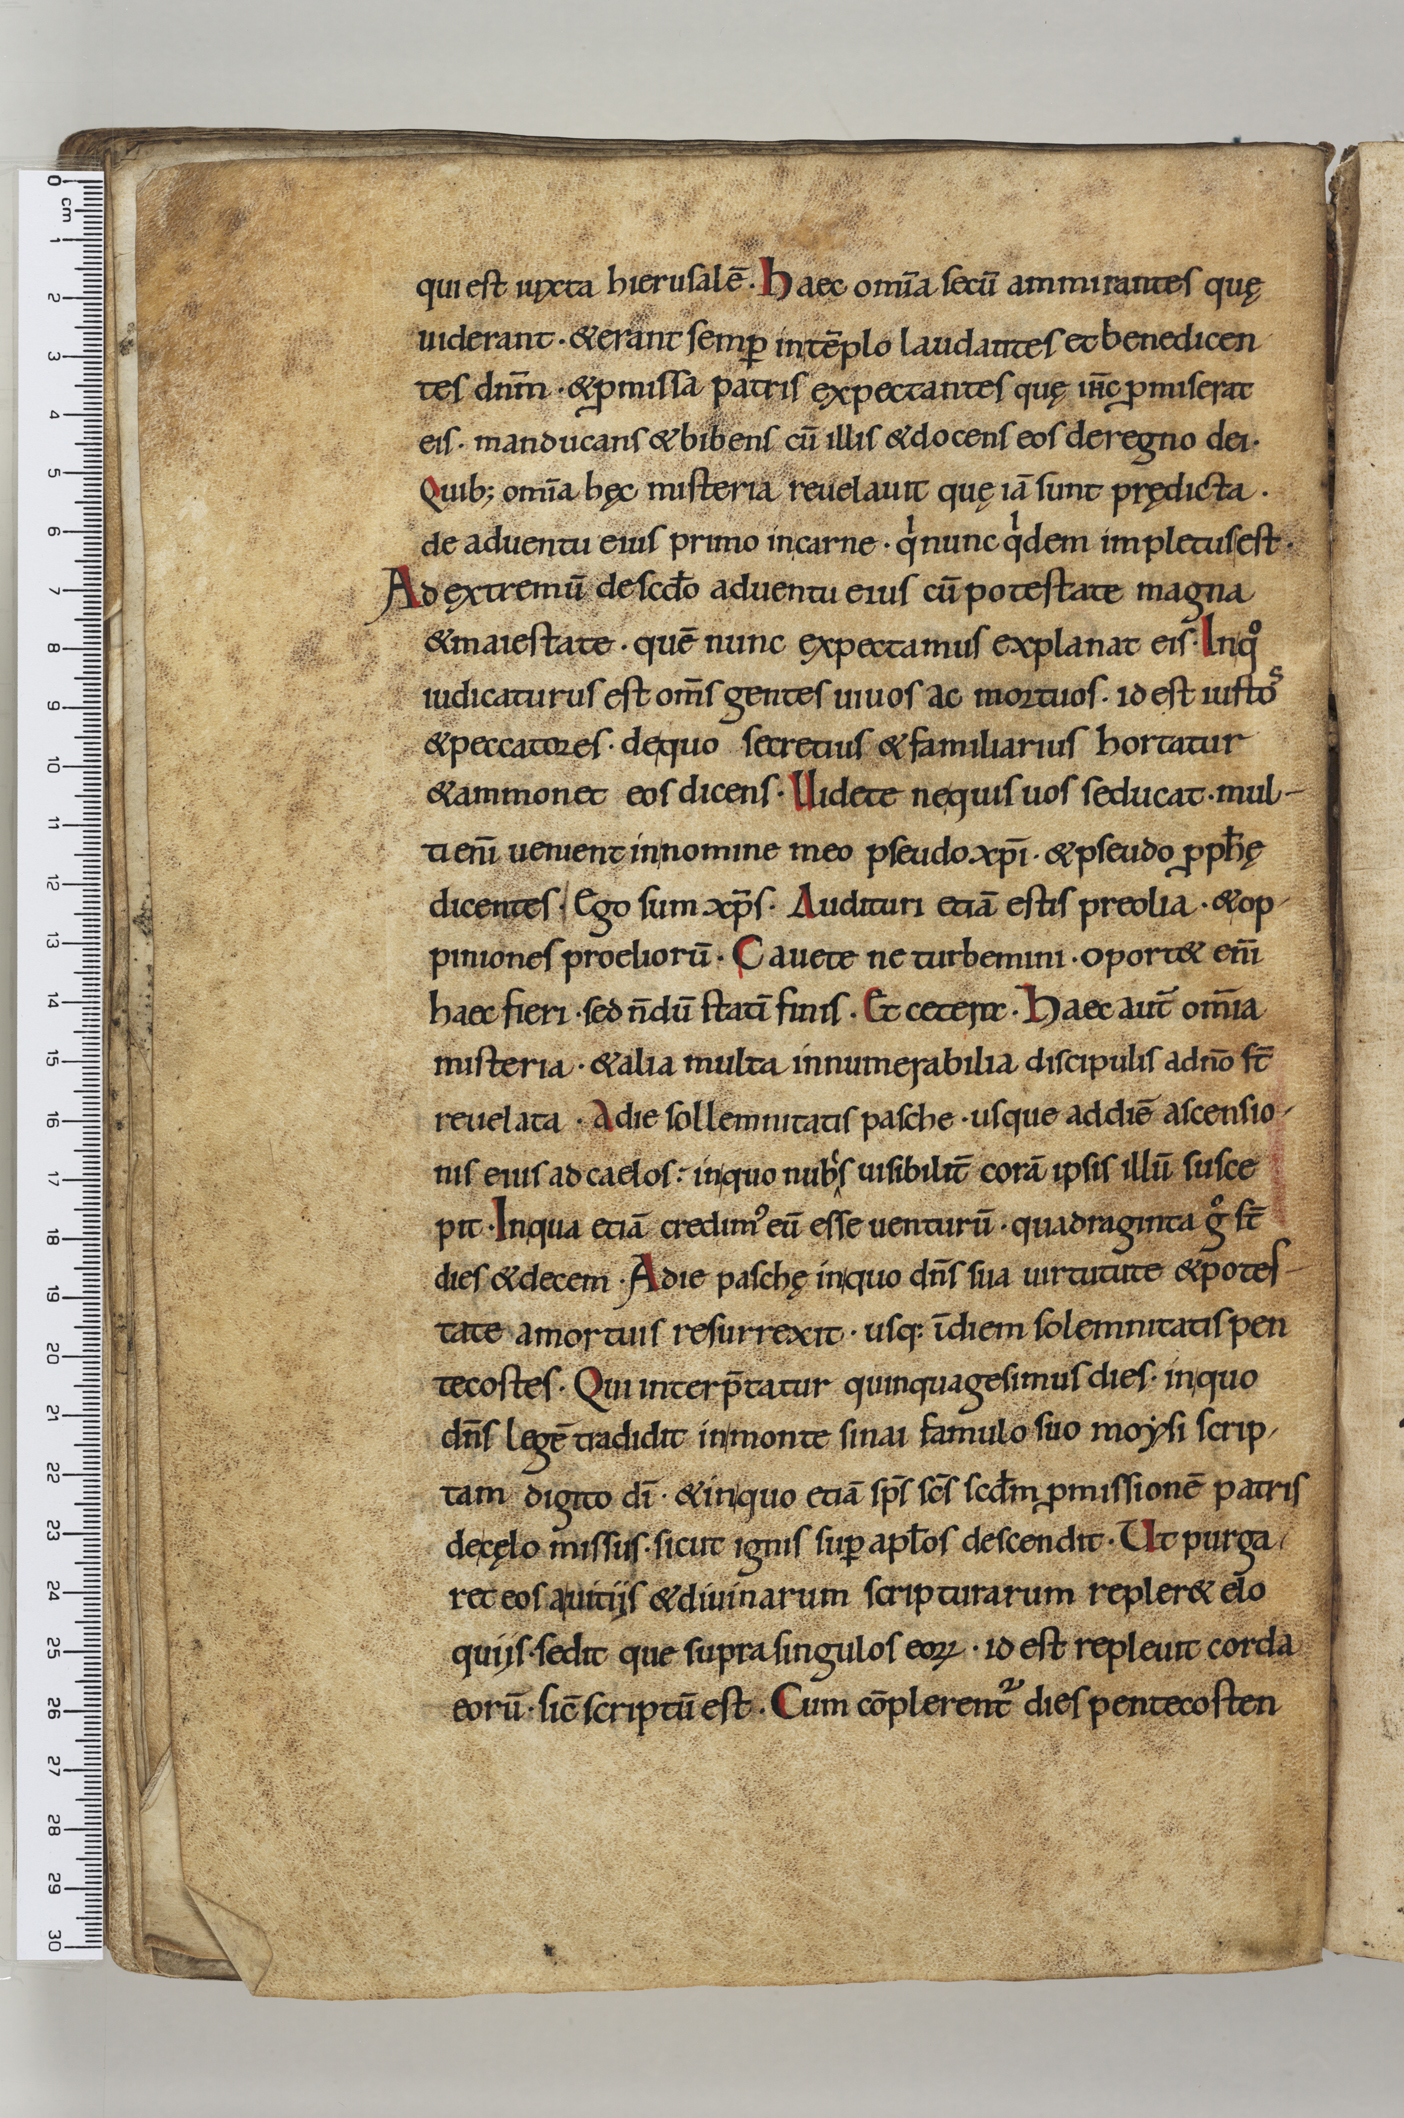 qui est iuxta hierusalē. Haec om̄ia secū ammirantes quę
uiderant · & erant semꝑ in tēplo laudantes et benedicen
tes dnm̄ · & ꝓmissa patris expectantes quę iħc ꝓmiserat
eis · manducans & bibens cū illis & docens eos de regno dei ·
Quib; om̄ia hęc misteria reuelauit quę iā sunt prędicta ·
de aduentu eius primo in carne · qͥ nunc qͥdem impletus est ·
Ad extremū de scđo aduentu eius cū potestate magna
& maiestate · quē nunc expectamus explanat eis · In qͦ
iudicaturus est om̄s gentes uiuos ac mortuos · id est iustos
& peccatores · de quo secretius & familiarius hortatur
& ammonet eos dicens · Uidete nequis uos seducat · mul-
ti eni̅ uenient in nomine meo pseudo xp̄i · & pseudo ꝓpħę
dicentes · Ego sum xp̄s · Audituri etiā estis preolia · & op-
piniones proeliorū · Cauete ne turbemini · oport& eni̅
haec fieri · sed n̄dū statī finis · Et cetera · Haec aut̄ om̄ia
misteria · & alia multa innumerabilia discipulis a dn̄o st̄
reuelata · A die sollemnitatis pasche · usque ad diē ascensio-
nis eius ad caelos : in quo nubͥs uisibilit̄ corā ipsis illū susce
pit · In qua etiā credimꝰ eū esse uenturū · quadraginta gͦ st̄
dies & decem · A die paschę in quo dn̄s sua uirtutute & potes-
tate a mortuis resurrexit · usq: ī diem solemnitatis pen
tecostes · Qui interp̄tatur quinquagesimus dies · in quo
dn̄s legē tradidit in monte sinai famulo suo moysi scrip-
tam digito dī · & in quo etiā sp̄s sc̄s scđm ꝓmissionē patris
de cęlo missus · sicut ignis suꝑ apłos descendit · Ut purga-
ret eos a uitijs & diuinarum scripturarum repler& elo
quijs · sedit que supra singulos eoꝝ · id est repleuit corda
eorū · sic̄ scriptū est · Cum cōplerent᷑ dies pentecosten